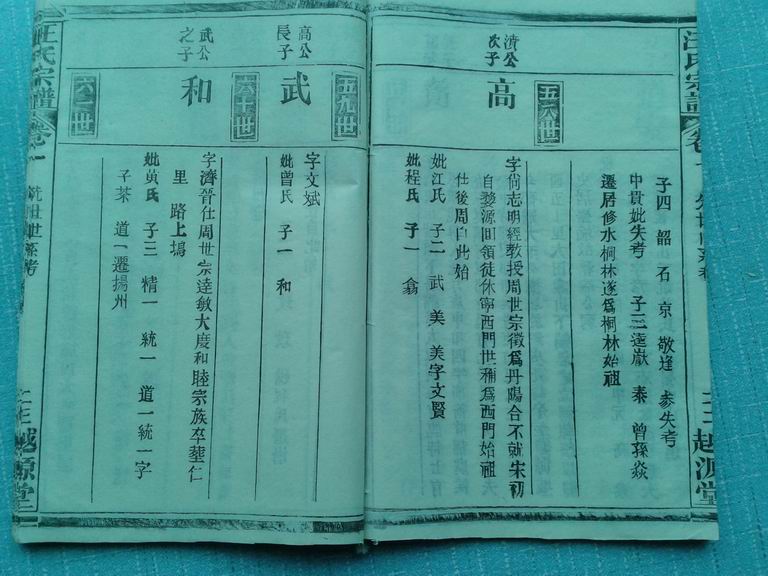 汪氏宗譜
卷一
越源堂
子四 韶 石 京 敬逢 參失考
中貫妣失考 子三遠巚 泰 曾孫焱
遷居修水桐林遂爲桐林始祖
五八世
瀆公次子
高
字尙志明經教授周世宗徵爲丹陽合不就宋初
自婺源回領徒休寧西門世稱爲西門始祖
仕後周自此始
妣江氏 子二 武 美 美字文賢
妣程氏 子一 翕
五九世
高公長子
武
字文斌
妣曾氏 子一 和
六十世
武公之子
和
字濟晉仕周世宗達敏大慶和睦宗族卒塟仁
里 路上塢
妣黃氏 子三 精一 統一 道一統一字
子茶 道一遷揚州
六一世
汪氏宗譜
卷一
統世世系考
越源堂